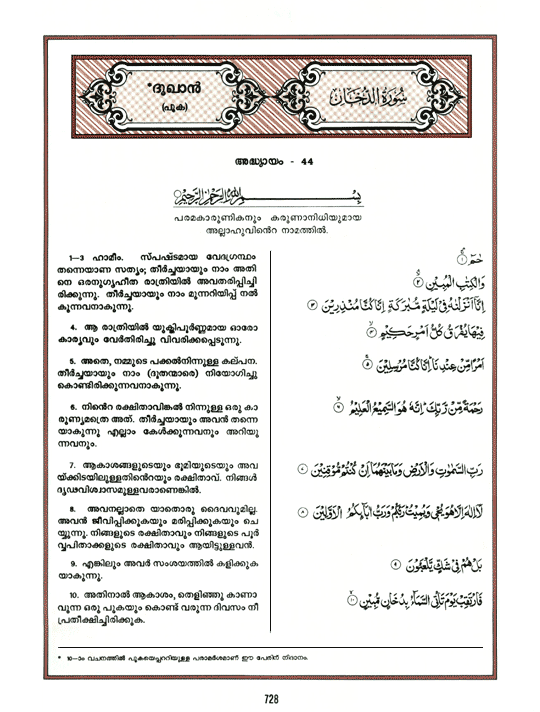 *ദുഖാൻ
(പുക)
سُورَةُ الدُّخَان
അദ്ധ്യായം - 44
بِسْمِ اللَّهِ الرَّحْمَٰنِ الرَّحِيمِ
പരമകാരുണികനും കരുണാനിധിയുമായ
അല്ലാഹുവിൻെറ നാമത്തിൽ.
1—3 ഹാമീം. സ്പഷ്ടമായ വേദഗ്രന്ഥം
തന്നെയാണ സത്യം; തീർച്ചയായും നാം അതി
നെ ഒരനുഗൃഹീത രാത്രിയിൽ അവതരിപ്പിച്ചി
രിക്കുന്നു. തീർച്ചയായും നാം മുന്നറിയിപ്പ് നൽ
കുന്നവനാകുന്നു.
4. ആ രാത്രിയിൽ യുക്തിപൂർണ്ണമായ ഓരോ
കാര്യവും വേർതിരിച്ചു വിവരിക്കപ്പെടുന്നു.
5. അതെ, നമ്മുടെ പക്കൽനിന്നുള്ള കല്പന.
തീർച്ചയായും നാം (ദൂതന്മാരെ) നിയോഗിച്ചു
കൊണ്ടിരിക്കുന്നവനാകുന്നു.
6. നിൻെറ രക്ഷിതാവിങ്കൽ നിന്നുള്ള ഒരു കാ
രുണ്യമത്രെ അത്. തീർച്ചയായും അവൻ തന്നെ
യാകുന്നു എല്ലാം കേൾക്കുന്നവനും അറിയു
ന്നവനും.
7. ആകാശങ്ങളുടെയും ഭൂമിയുടെയും അവ
യ്ക്കിടയിലുള്ളതിൻെറയും രക്ഷിതാവ്. നിങ്ങൾ
ദൃഢവിശ്വാസമുള്ളവരാണെങ്കിൽ.
8. അവനല്ലാതെ യാതൊരു ദൈവവുമില്ല.
അവൻ ജീവിപ്പിക്കുകയും മരിപ്പിക്കുകയും ചെ
യ്യുന്നു. നിങ്ങളുടെ രക്ഷിതാവും നിങ്ങളുടെ പൂർ
വ്വപിതാക്കളുടെ രക്ഷിതാവും ആയിട്ടുള്ളവൻ.
9. എങ്കിലും അവർ സംശയത്തിൽ കളിക്കുക
യാകുന്നു.
10. അതിനാൽ ആകാശം, തെളിഞ്ഞു കാണാ
വുന്ന ഒരു പുകയും കൊണ്ട് വരുന്ന ദിവസം നീ
പ്രതീക്ഷിച്ചിരിക്കുക.
حٰمٓ ۝١
وَالْكِتٰبِ الْمُبِيْنِ ۝٢
اِنَّآ اَنْزَلْنٰهُ فِيْ لَيْلَةٍ مُّبٰرَكَةٍ اِنَّا كُنَّا مُنْذِرِيْنَ ۝٣
فِيْهَا يُفْرَقُ كُلُّ اَمْرٍ حَكِيْمٍ ۝٤
اَمْرًا مِّنْ عِنْدِنَا اِنَّا كُنَّا مُرْسِلِيْنَ ۝٥
رَحْمَةً مِّنْ رَّبِّكَ اِنَّهٗ هُوَ السَّمِيْعُ الْعَلِيْمُ ۝٦
رَبِّ السَّمٰوٰتِ وَالْاَرْضِ وَمَا بَيْنَهُمَا اِنْ كُنْتُمْ مُّوْقِنِيْنَ ۝٧
لَآ اِلٰهَ اِلَّا هُوَ يُحْيٖ وَيُمِيْتُ رَبُّكُمْ وَرَبُّ اٰبَآئِكُمُ الْاَوَّلِيْنَ ۝٨
بَلْ هُمْ فِيْ شَكٍّ يَّلْعَبُوْنَ ۝٩
فَارْتَقِبْ يَوْمَ تَاْتِي السَّمَآءُ بِدُخَانٍ مُّبِيْنٍ ۝١٠
* 10—ാം വചനത്തിൽ പുകയെപ്പററിയുള്ള പരാമർശമാണ് ഈ പേരിന് നിദാനം.
728